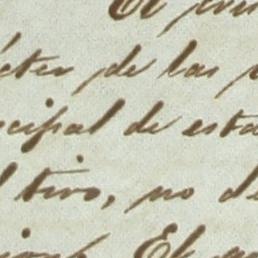 El
cter de las
cipal de esta
l tiro, no de
El